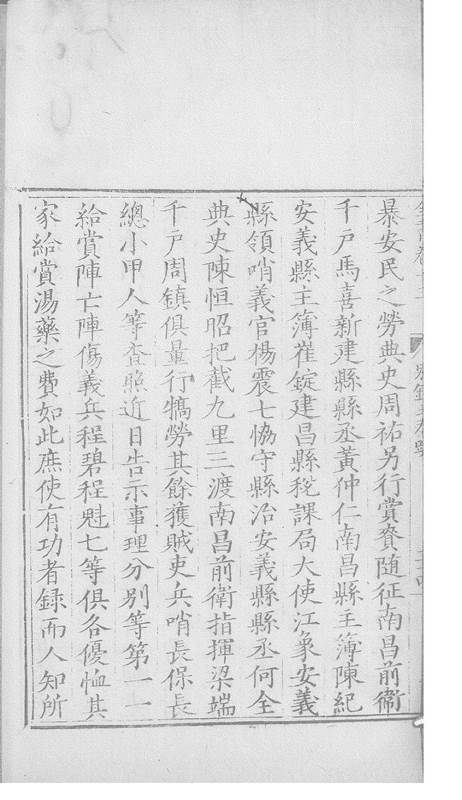 暴安民之勞典史周祐另行賞賚隨征南昌前衛
千戶馬喜新建縣縣丞黃仲仁南昌縣主簿陳紀
安義縣主簿崔錠建昌縣稅課局大使江象安義
縣領哨義官楊震七恊守縣治安義縣縣丞何全
典史陳恒昭把截九里三渡南昌前衛指揮梁端
千戶周鎮俱量行犒勞其餘獲賊吏兵哨長保長
總小甲人等查照近日告示事理分别等第一一
給賞陣亡陣傷義兵程碧程魁七等俱各優恤其
家給賞湯藥之費如此庶使有功者録而人知所